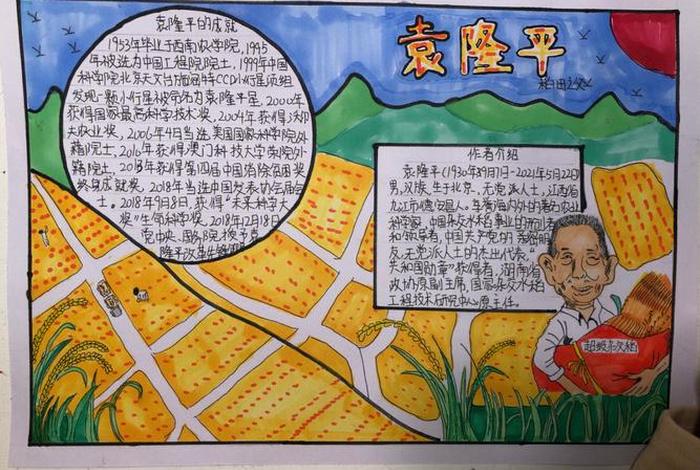 袁隆平
稻田之父
袁隆平的成就
1953年毕业于西南农学院,1995
年被选为中国工程院院士,1999年中国
科学院北京天文台施密特CCD小行星项组
发现一颗小行星被命名为袁隆平星,2000年
获得国家最高科学技术奖,2004年获得沃尔
夫农业奖,2006年4月当选美国国家科学院外
籍院士,2010年获得澳门科技大学荣院外
籍院士,2018年获得第四届中国消除贫困奖
终身成就奖,2018年当选中国发表协会会
士,2018年9月8日,获得"未来科学大
奖"生命科学奖,2018年12月18日,
党中央、国务院授予袁
隆平改革先锋
作者介绍
袁隆平(1930年9月7日-2021年5月22日)
男,汉族,生于北京,无党派人士,江西省
九江市德安县人。享誉海内外的著名农业
科学家,中国杂交水稻事业的开创者
和领导者,中国共产党的亲密朋
友,无党派人士的杰出代表,"
共和国勋章"获得者,湖南省
政协原副主席,国家杂交水稻
工程技术研究中心原主任。
超级杂交稻